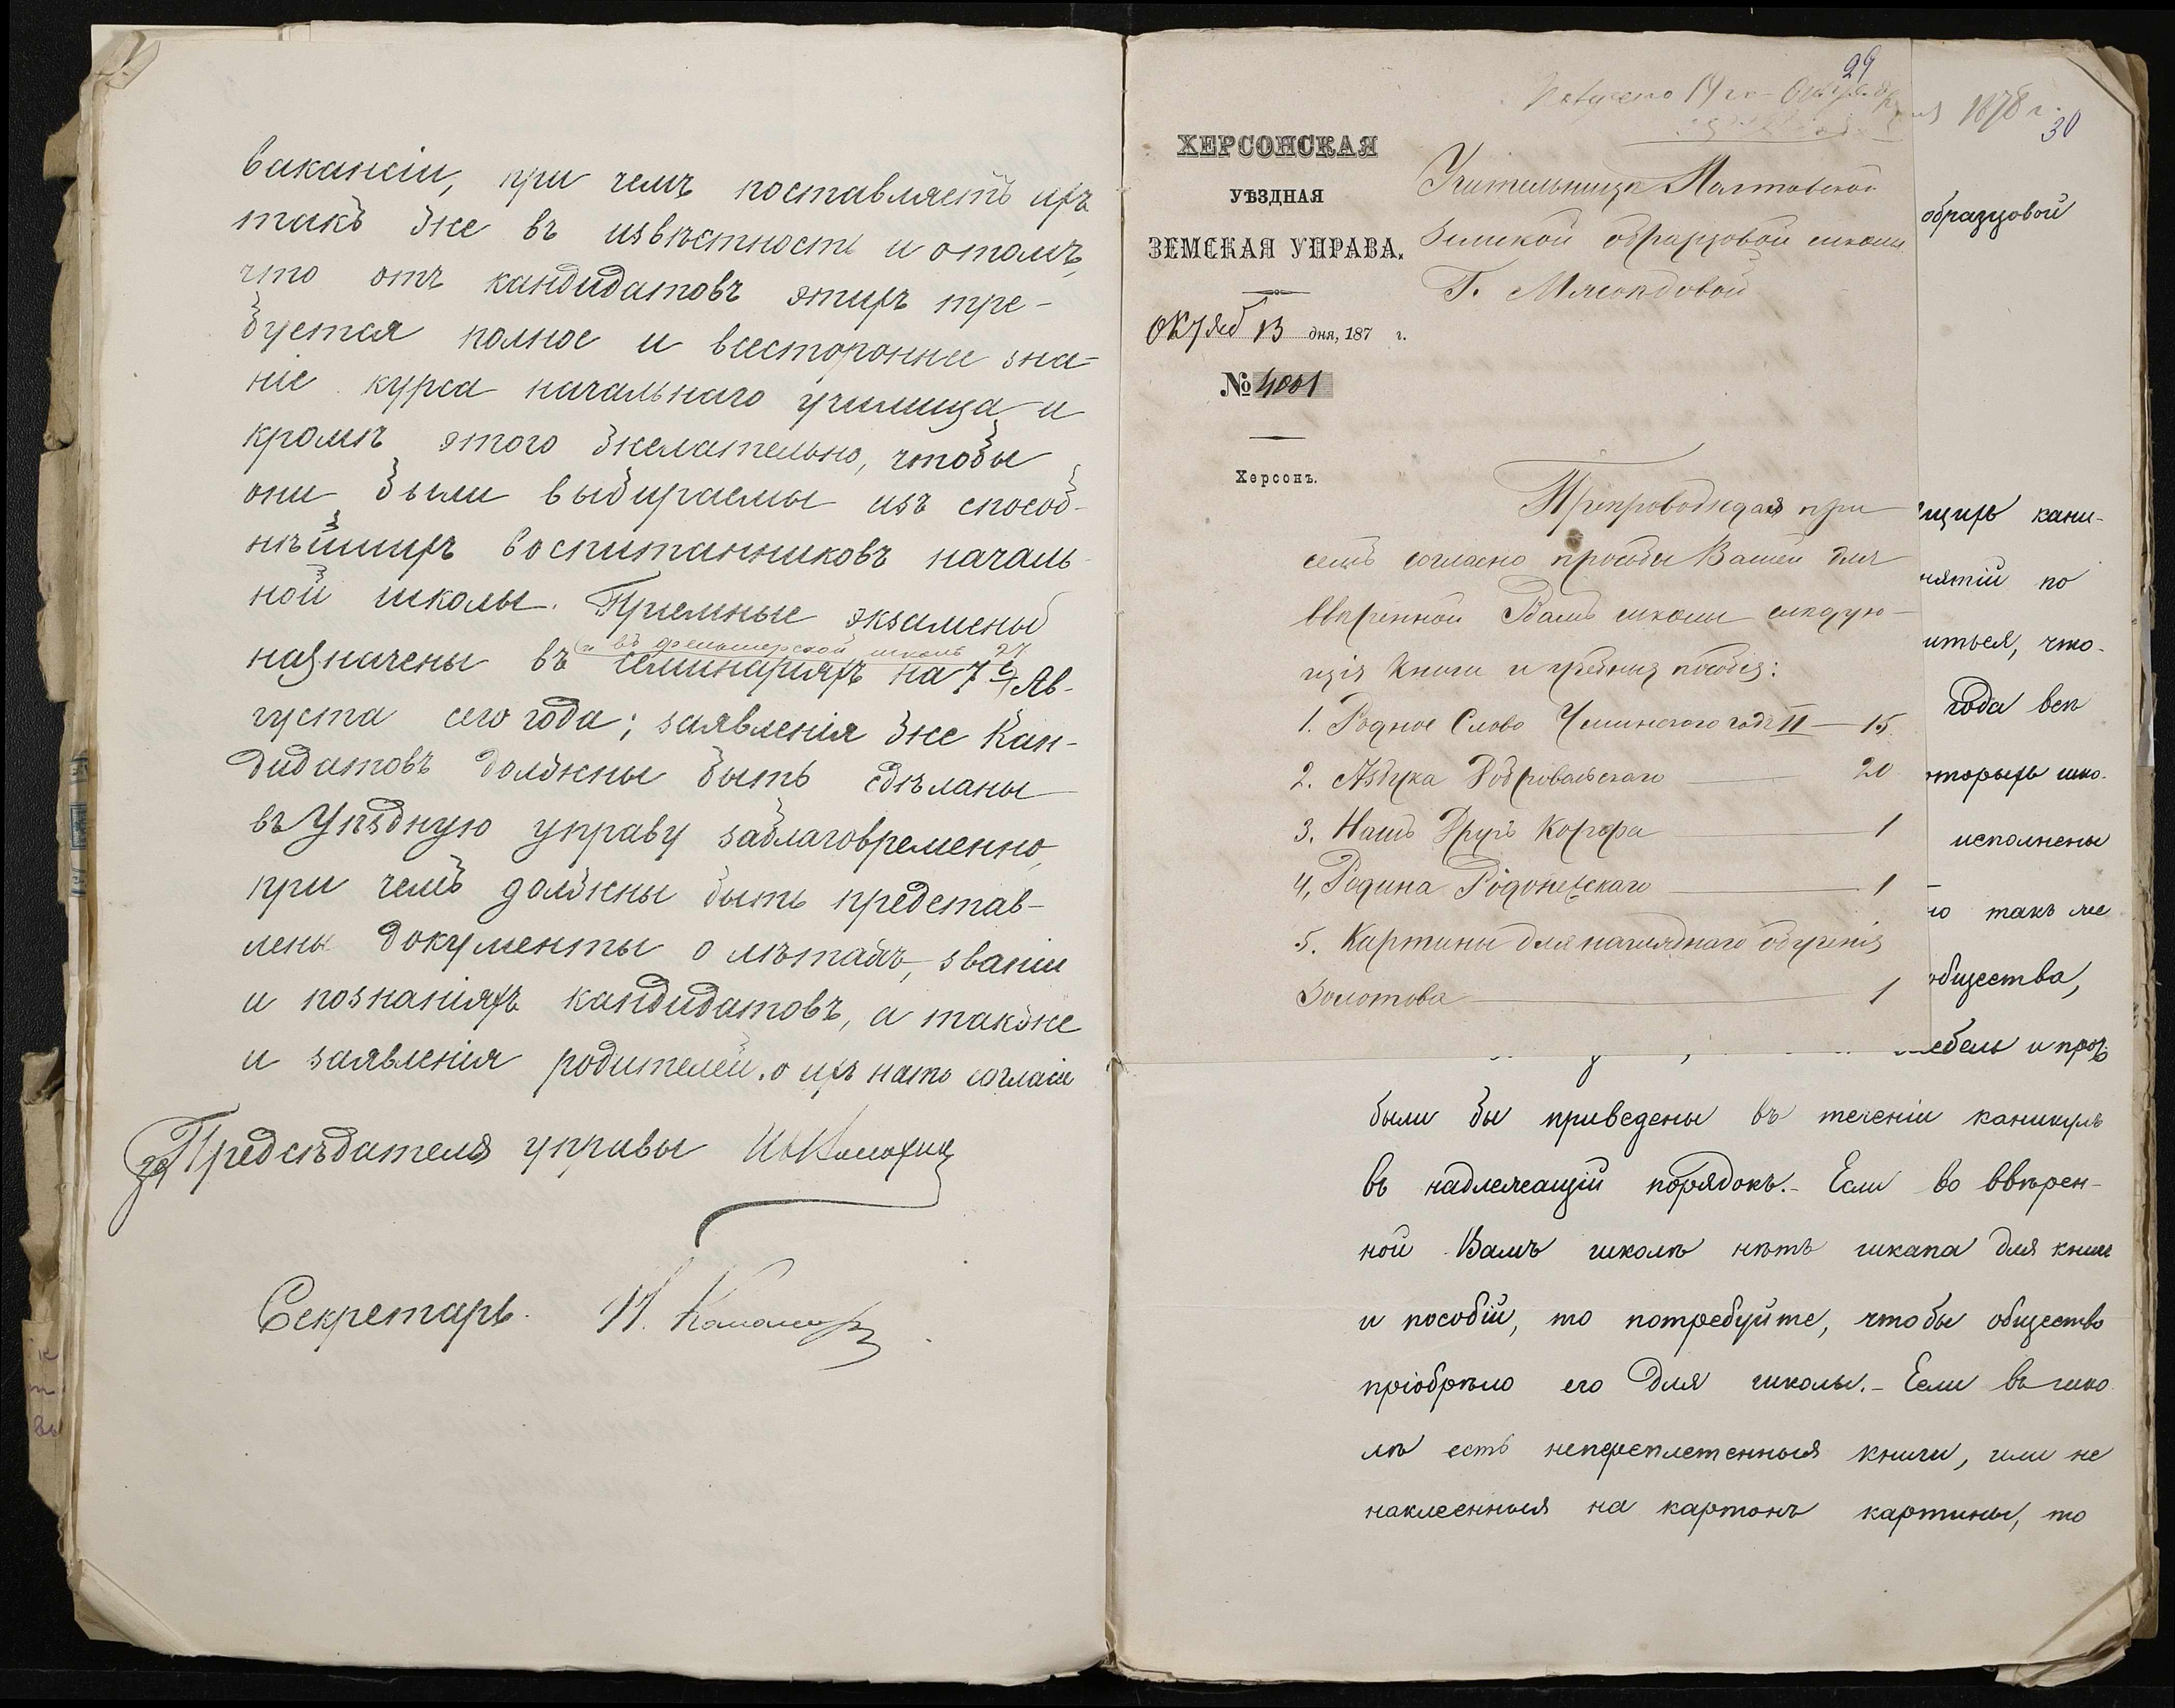 вакансіи, при чемъ поставляетъ ихъ
такъ же въ извѣстность и отомъ,
что отъ кандидатовъ этихъ тре-
буется полное и всестороннее зна-
ніе курса начальнаго училища и
кромѣ этого желательно, чтобы
они были выбираемы изъ способ-
нѣйшихъ воспитанниковъ началь-
ной школы. Пріемные экзамены
(и въ фельшерской школѣ 27
назначены въ семинаріяхъ на 7 Ав-
густа сего года; заявленія же кан-
дидатовъ должны быть сдѣланы
въ Уѣздную управу заблаговременно,
при чемъ должны быть представ-
лены документы о лѣтахъ, званіи
и познаніяхъ кандидатовъ, а также
и заявленія родителей о ихъ нато согласіи
за Предсѣдателя управы
Секретарь.
29
Получено 19го Октября
1878 г.
30
ХЕРСОНСКАЯ
УѢЗДНАЯ
ЗЕМСКАЯ УПРАВА.
Октяб 13 дня, 187 г.
№ 4001
Херсонъ.
Учительницѣ Полтавской
Земской образцовой школы
Г. Мясоѣдовой
Препровождая при
семъ согласно просьбы Вашей для
ввѣренной Вамъ школы слѣдую-
щія книги и учебныя пособія:
1. Родное Слово Ушинскаго годъ II — 15.
2. Азбука Бобровскаго — 20
3. Нашъ Другъ Корфа — 1
4. Родина Радонежскаго — 1
5. Картины для нагляднаго обученія
Золотова — 1
образцовой
ющихъ кани-
нятій по
иться, что-
года всѣ
оторыхъ шко-
исполнены
но такъ же
общества,
мебель и проч.
были бы приведены въ теченіи каникулъ
въ надлежащій порядокъ.- Если во ввѣрен-
ной Вамъ школѣ нѣтъ шкапа для книгъ
и пособій, то потребуйте, чтобы общество
пріобрѣло его для школы.- Если въ шко
лѣ есть непереплетенныя книги, или не
наклеенныя на картонъ картины, то